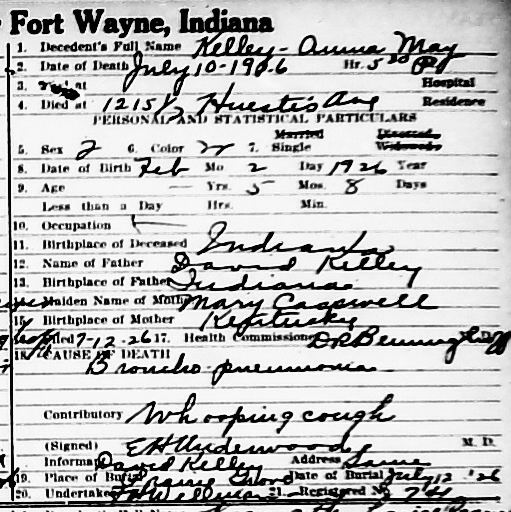 Fort Wayne, Indiana
1. Decedent's Full Name Kelley - Anna May
2. Date of Death July 10-1926 Hr. 5 30 P
3. at Hospital
4. Died at 1215½ Huestis Ave Residence
PERSONAL AND STATISTICAL PARTICULARS
Married Divorced
5. Sex 2 6. Color W 7. Single Widowed
8. Date of Birth Feb Mo 2 Day 1926 Year
9. Age — Yrs. 5 Mos. 8 Days
Less than a Day Hrs. Min.
10. Occupation
11. Birthplace of Deceased Indiana
12. Name of Father David Kelley
13. Birthplace of Father Indiana
Maiden Name of Mother Mary Casswell
15. Birthplace of Mother Kentucky
Filed 7-12-26 17. Health Commissioner M. D.
18. CAUSE OF DEATH
Broncho pneumonia
Contributory Whooping cough
(Signed) E H Underwood M. D.
Informant David Kelley Address Same
19. Place of Burial Date of Burial July 12 '26
20. Undertaker 21. Registered No